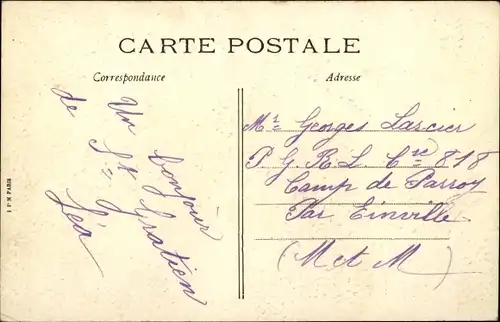 CARTE POSTALE
Correspondance
Adresse
Un bonjour
de St Gratien
Léa
Mr Georges Larcier
P G R L Cse 818
Camp de Parroy
Par Einville
(M et M)
I P M PARIS